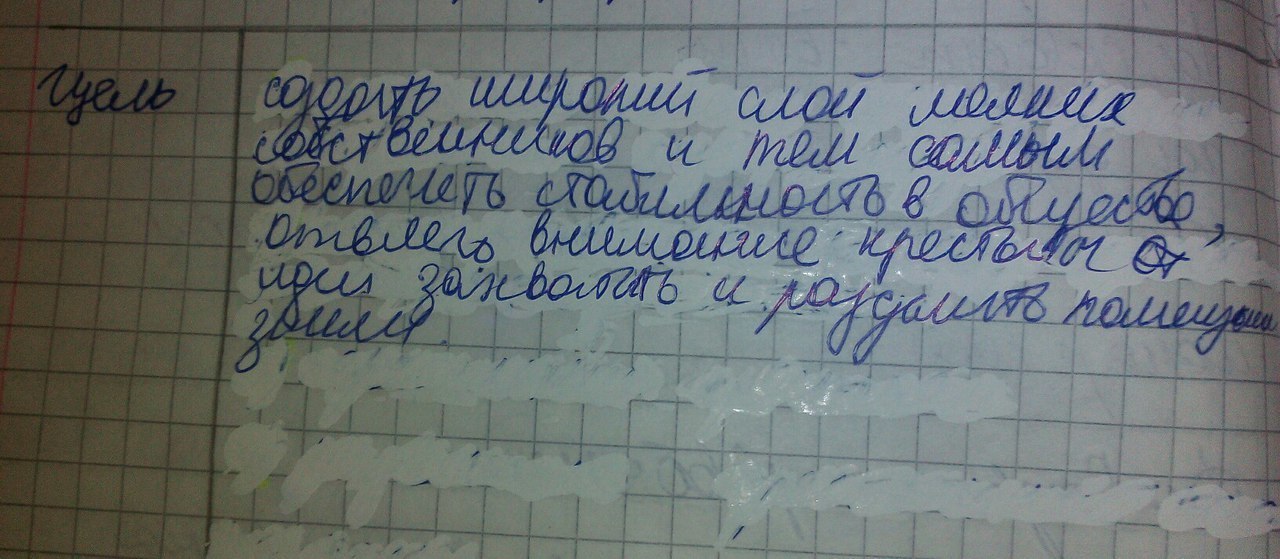 Цель
создать широкий слой мелких
собственников и тем самым
обеспечеть стабильность в общество,
отвлечь внимание крестьян от
идеи захватить и разделить помещичьи
земли.